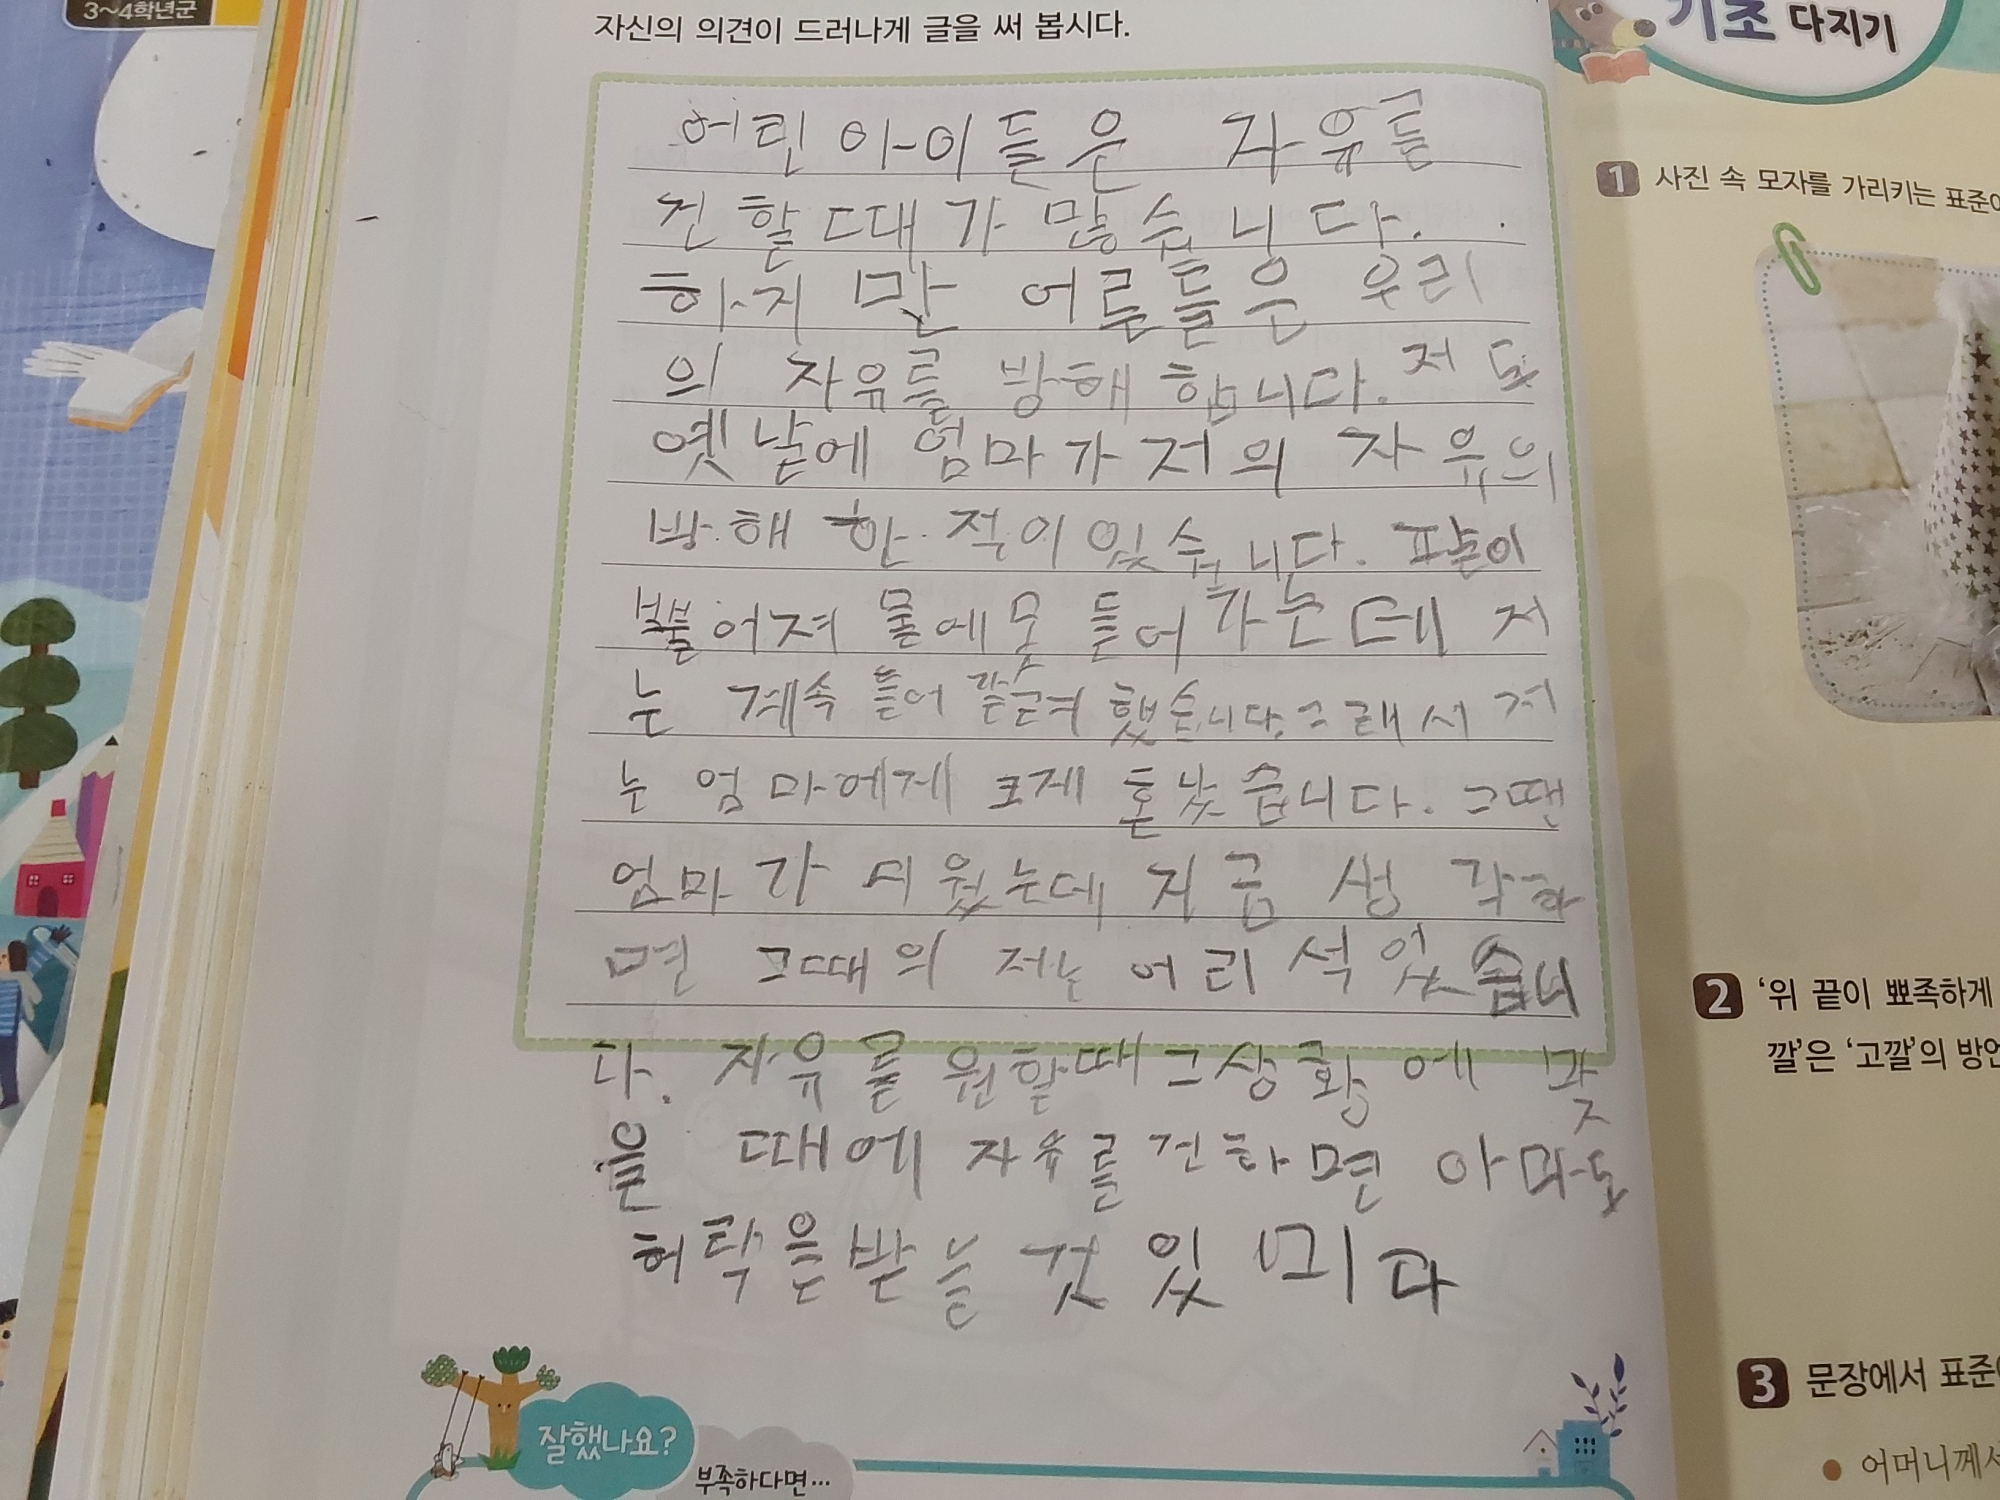 3~4학년군
자신의 의견이 드러나게 글을 써 봅시다.
어린 아이들은 자유를
건할때가 많습니다.
하지만 어른들은 우리
의 자유를 방해합니다. 저도
옛날에 엄마가 저의 자유의
방해한 적이 있습니다. 팔이
뿔어져 물에 못 들어가는데 저
는 계속 들어 갈려 했습니다. 그래서 저
는 엄마에게 크게 혼났습니다. 그땐
엄마가 미웠는데 지금 생각하
면 그때의 저는 어리석었습니
다. 자유를 원할때 그상황에 맞
을 때에 자유를 건하면 아마도
허락을 받늘 것 있 니다
잘했나요?
부족하다면...
기초 다지기
1 사진 속 모자를 가리키는 표준어
2 ‘위 끝이 뾰족하게
깔’은 ‘고깔’의 방언
3 문장에서 표준어
어머니께서